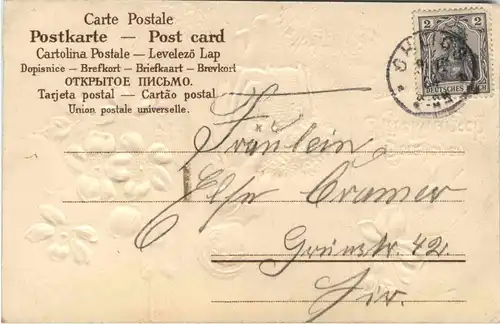 Carte Postale
Postkarte — Post card
Cartolina Postale — Levelező Lap
Dopisnice — Brefkort — Briefkaart — Brevkort
ОТКРЫТОЕ ПИСЬМО.
Tarjeta postal — Cartão postal
Union postale universelle.
2
DEUTSCHES REICH
Fräulein
Cramer
Grünstr. 42.